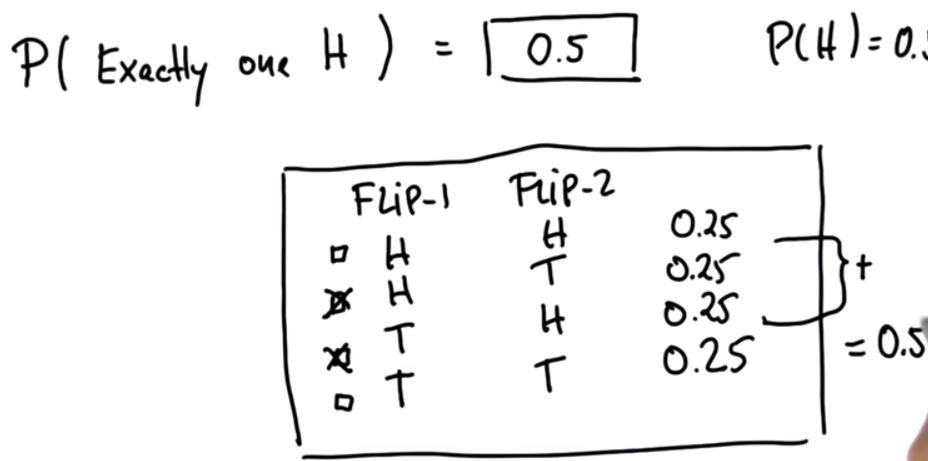 P( Exactly one H ) = 0.5 P(H) = 0.5
FLiP-1 FLiP-2
H H 0.25
H T 0.25 +
T H 0.25
T T 0.25 = 0.5